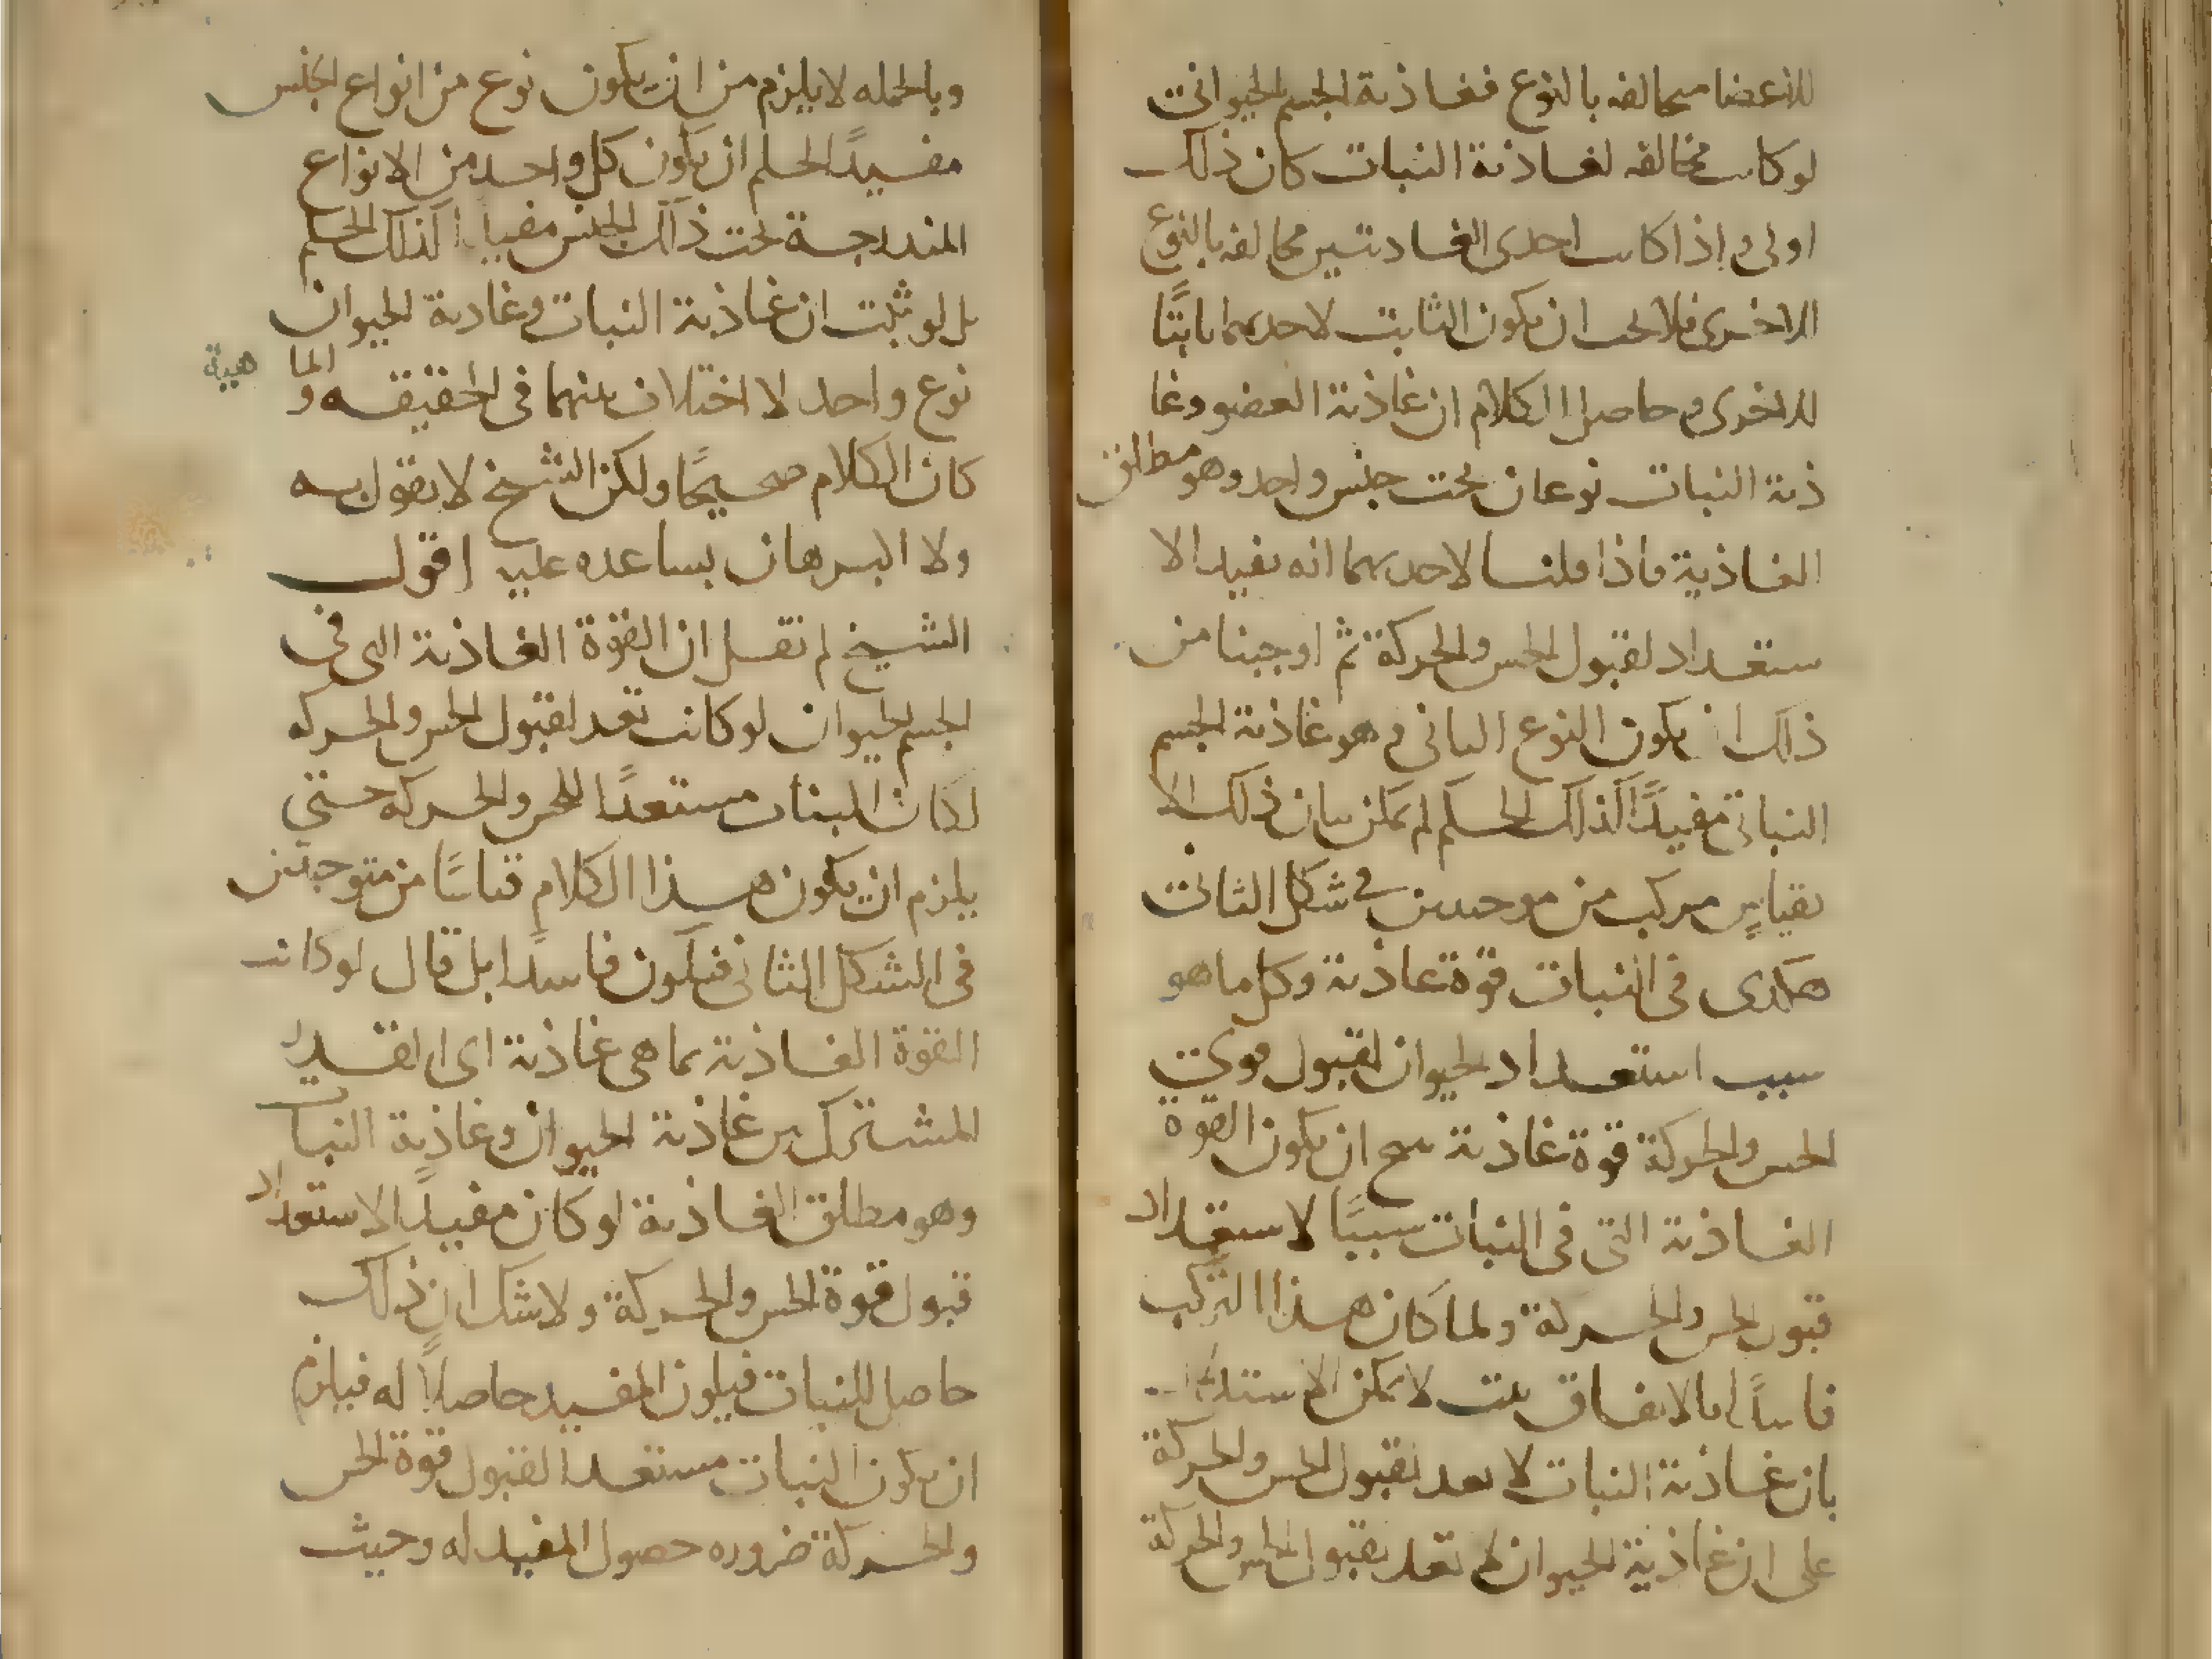 للاعضا مخالفه بالنوع فغاذية الجسم الحيواني
لو كانت مخالفه لغاذية النبات كان ذلك
اولى واذا كانت احدى الغاديتين مخالفه بالنوع
للاخرى فلا يجب ان يكون الثابت لاحديهما ثابتًا
للاخرى وحاصل الكلام ان غاذية العضو وغا
ذية النبات نوعان تحت جنس واحد وهو مطلق
الغاذية فاذا قلنا لاحديهما انه يفيد الا
ستعداد لقبول الحس والحركة ثم اوجبنا من
ذلك ان يكون النوع الثاني وهو غاذية الجسم
النباتي مفيدًا لذلك الحكم لم يمكن بيان ذلك الا
بقياسٍ مركب من موجبتين في شكل الثاني
هكذى في النبات قوة غاذية وكل ما هو
سبب استعداد الحيوان لقبول قوتي
الحس والحركة قوة غاذية ينتج ان يكون القوة
الغاذية التي في النبات سببًا لاستعداد
قبول الحس والحركة ولما كان هذا التركيب
فاسدًا بالاتفاق ثبت لا يمكن الاستدلال
بان غاذية النبات لا تعد لقبول الحس والحركة
على ان غاذية الحيوان لم تعد لقبول الحس والحركة
وبالجمله لا يلزم من ان يكون نوع من انواع الجنس
مفيدًا لحكم ان يكون كل واحد من الانواع
المندرجة تحت ذلك الجنس مفيدا لذلك الحكم
بل لو ثبت ان غاذية النبات وغاذية الحيوان
نوع واحد لا اختلاف بينهما في الحقيقه و الما هية
كان الكلام صحيحًا ولكن الشيخ لا يقول به
ولا البرهان يساعده عليه اقول
الشيخ لم يقل ان القوة الغاذية التي في
الجسم الحيوان لو كانت تعد لقبول الحس والحركه
لكان النبات مستعدًا للحس والحركه حتي
يلزم ان يكون هذا الكلام قياسًا من متوجبتين
في الشكل الثاني فيكون فاسدا بل قال لو كانت
القوة الغاذية بما هي غاذية اي القدر
المشترك بين غاذية الحيوان وغاذية النبات
وهو مطلق الغاذية لو كان مفيدًا لاستعداد
قبول قوة الحس والحركة ولا شك ان ذلك
حاصل للنبات فيكون المفيد حاصلًا له فيلزم
ان يكون النبات مستعدا لقبول قوة الحس
والحركة ضروره حصول المفيد له وحيث